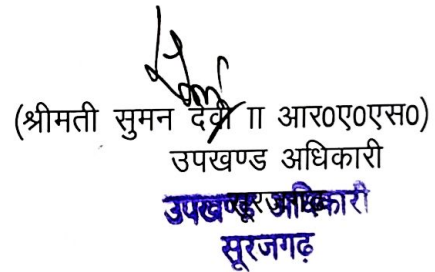 (श्रीमती सुमन देवी II आर0ए0एस0)
उपखण्ड अधिकारी
उपखण्ड अधिकारी
सूरजगढ़